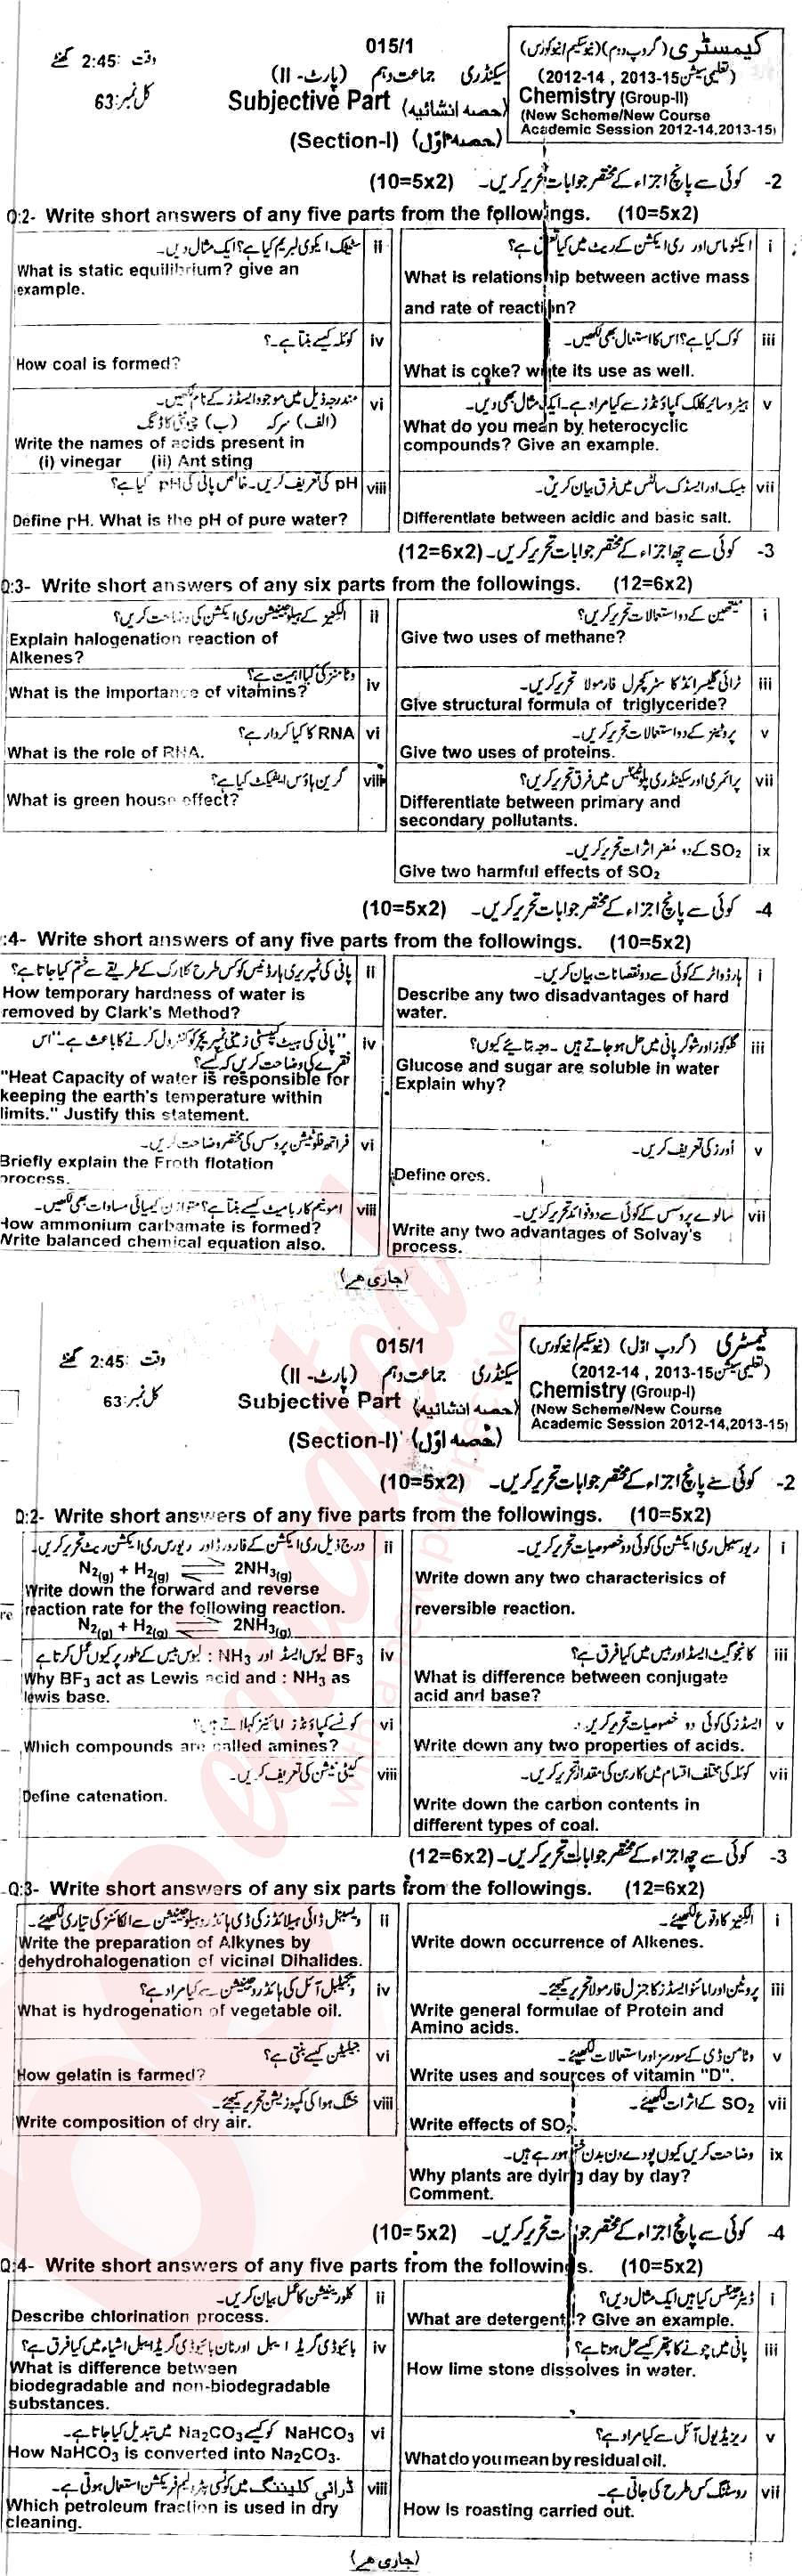 015/1
وقت :2:45 گھنٹے
کل نمبر:63
سیکنڈری جماعت دہم (پارٹ-II)
Subjective Part (حصہ انشائیہ)
(Section-I) (حصہ اوّل)
کیمسٹری (گروپ دوم) (نیو سکیم/نیو کورس)
(تعلیمی سیشن 2012-14 , 2013-15)
Chemistry (Group-II)
(New Scheme/New Course
Academic Session 2012-14,2013-15)
2- کوئی سے پانچ اجزاء کے مختصر جوابات تحریر کریں۔ (10=5x2)
Q:2- Write short answers of any five parts from the followings. (10=5x2)
i ایکٹو ماس اور ری ایکشن کے ریٹ میں کیا تعلق ہے؟
What is relationship between active mass
and rate of reaction?
ii سٹیٹک ایکوی لبریم کیا ہے؟ ایک مثال دیں۔
What is static equilibrium? give an
example.
iii کوک کیا ہے؟ اس کا استعمال بھی لکھیں۔
What is coke? write its use as well.
iv کوئلہ کیسے بنتا ہے؟
How coal is formed?
v ہیٹروسائیکلک کمپاؤنڈز سے کیا مراد ہے۔ ایک مثال بھی دیں۔
What do you mean by heterocyclic
compounds? Give an example.
vi مندرجہ ذیل میں موجود ایسڈز کے نام لکھیں۔
(الف) سرکہ (ب) چیونٹی کا ڈنگ
Write the names of acids present in
(i) vinegar (ii) Ant sting
vii بیسک اور ایسڈک سالٹس میں فرق بیان کریں۔
Differentiate between acidic and basic salt.
viii pH کی تعریف کریں۔ خالص پانی کی pH کیا ہے؟
Define pH. What is the pH of pure water?
3- کوئی سے چھ اجزاء کے مختصر جوابات تحریر کریں۔ (12=6x2)
Q:3- Write short answers of any six parts from the followings. (12=6x2)
i میتھین کے دو استعمالات تحریر کریں؟
Give two uses of methane?
ii الکینز کے ہیلوجینیشن ری ایکشن کی وضاحت کریں؟
Explain halogenation reaction of
Alkenes?
iii ٹرائی گلیسرائڈ کا سٹرکچرل فارمولا تحریر کریں۔
Give structural formula of triglyceride?
iv وٹامنز کی کیا اہمیت ہے؟
What is the importance of vitamins?
v پروٹینز کے دو استعمالات تحریر کریں۔
Give two uses of proteins.
vi RNA کا کیا کردار ہے؟
What is the role of RNA.
vii پرائمری اور سیکنڈری پلوٹینٹس میں فرق تحریر کریں؟
Differentiate between primary and
secondary pollutants.
viii گرین ہاؤس ایفیکٹ کیا ہے؟
What is green house effect?
ix SO₂ کے دو مضر اثرات تحریر کریں۔
Give two harmful effects of SO₂
4- کوئی سے پانچ اجزاء کے مختصر جوابات تحریر کریں۔ (10=5x2)
:4- Write short answers of any five parts from the followings. (10=5x2)
i ہارڈ واٹر کے کوئی سے دو نقصانات بیان کریں۔
Describe any two disadvantages of hard
water.
ii پانی کی ٹمپریری ہارڈنیس کو کس طرح کلارک کے طریقے سے ختم کیا جاتا ہے؟
How temporary hardness of water is
removed by Clark's Method?
iii گلوکوز اور شوگر پانی میں حل ہو جاتے ہیں۔ وجہ بتائیے کیوں؟
Glucose and sugar are soluble in water
Explain why?
iv "پانی کی ہیٹ کپیسٹی زمینی ٹمپریچر کو کنٹرول کرنے کا باعث ہے۔" اس
فقرے کی وضاحت کریں کہ کیسے؟
"Heat Capacity of water is responsible for
keeping the earth's temperature within
limits." Justify this statement.
v اورز کی تعریف کریں۔
Define ores.
vi فراتھ فلوٹیشن پروسس کی مختصر وضاحت کریں۔
Briefly explain the Froth flotation
process.
vii سالوے پروسس کے کوئی سے دو فوائد تحریر کریں۔
Write any two advantages of Solvay's
process.
viii امونیم کاربامیٹ کیسے بنتا ہے؟ متوازن کیمیائی مساوات بھی لکھیں۔
How ammonium carbamate is formed?
Write balanced chemical equation also.
(جاری ہے)
015/1
وقت :2:45 گھنٹے
کل نمبر:63
سیکنڈری جماعت دہم (پارٹ-II)
Subjective Part (حصہ انشائیہ)
(Section-I) (حصہ اوّل)
کیمسٹری (گروپ اوّل) (نیو سکیم/نیو کورس)
(تعلیمی سیشن 2012-14 , 2013-15)
Chemistry (Group-I)
(New Scheme/New Course
Academic Session 2012-14,2013-15)
2- کوئی سے پانچ اجزاء کے مختصر جوابات تحریر کریں۔ (10=5x2)
Q:2- Write short answers of any five parts from the followings. (10=5x2)
i ریورسیبل ری ایکشن کی کوئی دو خصوصیات تحریر کریں۔
Write down any two characterisics of
reversible reaction.
ii درج ذیل ری ایکشن کے فارورڈ اور ریورس ری ایکشن ریٹ تحریر کریں۔
N₂(g) + H₂(g) ⇌ 2NH₃(g)
Write down the forward and reverse
reaction rate for the following reaction.
N₂(g) + H₂(g) ⇌ 2NH₃(g)
iii کانجوگیٹ ایسڈ اور بیس میں کیا فرق ہے؟
What is difference between conjugate
acid and base?
iv BF₃ لیوس ایسڈ اور NH₃ : لیوس بیس کے طور پر کیوں عمل کرتا ہے
Why BF₃ act as Lewis acid and : NH₃ as
lewis base.
v ایسڈز کی کوئی دو خصوصیات تحریر کریں۔
Write down any two properties of acids.
vi کونسے کمپاؤنڈز امائنز کہلاتے ہیں؟
Which compounds are called amines?
vii کوئلہ کی مختلف اقسام میں کاربن کی مقدار تحریر کریں۔
Write down the carbon contents in
different types of coal.
viii کیٹی نیشن کی تعریف کریں۔
Define catenation.
3- کوئی سے چھ اجزاء کے مختصر جوابات تحریر کریں۔ (12=6x2)
Q:3- Write short answers of any six parts from the followings. (12=6x2)
i الکینز کا وقوع لکھیئے۔
Write down occurrence of Alkenes.
ii ویسینل ڈائی ہیلائڈز کی ڈی ہائڈروہیلوجینیشن سے الکائنز کی تیاری لکھیئے۔
Write the preparation of Alkynes by
dehydrohalogenation of vicinal Dihalides.
iii پروٹین اور امائنو ایسڈز کا جنرل فارمولا تحریر کیجئے۔
Write general formulae of Protein and
Amino acids.
iv ویجیٹیبل آئل کی ہائڈروجینیشن سے کیا مراد ہے؟
What is hydrogenation of vegetable oil.
v وٹامن ڈی کے سورسز اور استعمالات لکھیئے۔
Write uses and sources of vitamin "D".
vi جیلیٹن کیسے بنتی ہے؟
How gelatin is farmed?
vii SO₂ کے اثرات لکھیئے۔
Write effects of SO₂.
viii خشک ہوا کی کمپوزیشن تحریر کیجئے۔
Write composition of dry air.
ix وضاحت کریں کیوں پودے دن بدن ختم ہو رہے ہیں۔
Why plants are dying day by day?
Comment.
4- کوئی سے پانچ اجزاء کے مختصر جوابات تحریر کریں۔ (10=5x2)
Q:4- Write short answers of any five parts from the followings. (10=5x2)
i ڈیٹرجنٹس کیا ہیں ایک مثال دیں؟
What are detergent ? Give an example.
ii کلورینیشن کا عمل بیان کریں۔
Describe chlorination process.
iii پانی میں چونے کا پتھر کیسے حل ہوتا ہے؟
How lime stone dissolves in water.
iv بائیوڈی گریڈ ایبل اور نان بائیوڈی گریڈ ایبل اشیاء میں کیا فرق ہے؟
What is difference between
biodegradable and non-biodegradable
substances.
v ریزیڈیول آئل سے کیا مراد ہے؟
What do you mean by residual oil.
vi NaHCO₃ کو کیسے Na₂CO₃ میں تبدیل کیا جاتا ہے۔
How NaHCO₃ is converted into Na₂CO₃.
vii روسٹنگ کس طرح کی جاتی ہے۔
How is roasting carried out.
viii ڈرائی کلیننگ میں کونسی پٹرولیم فریکشن استعمال ہوتی ہے۔
Which petroleum fraction is used in dry
cleaning.
(جاری ہے)